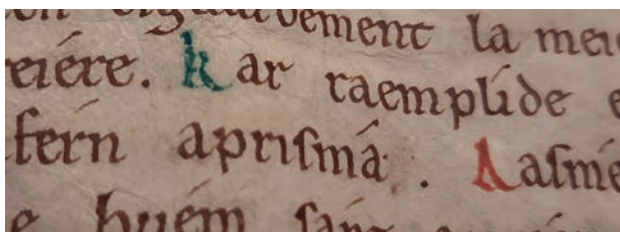 vement la mei
eiére. kar raemplide e
fern aprismá. Aasmé
e huém sanz